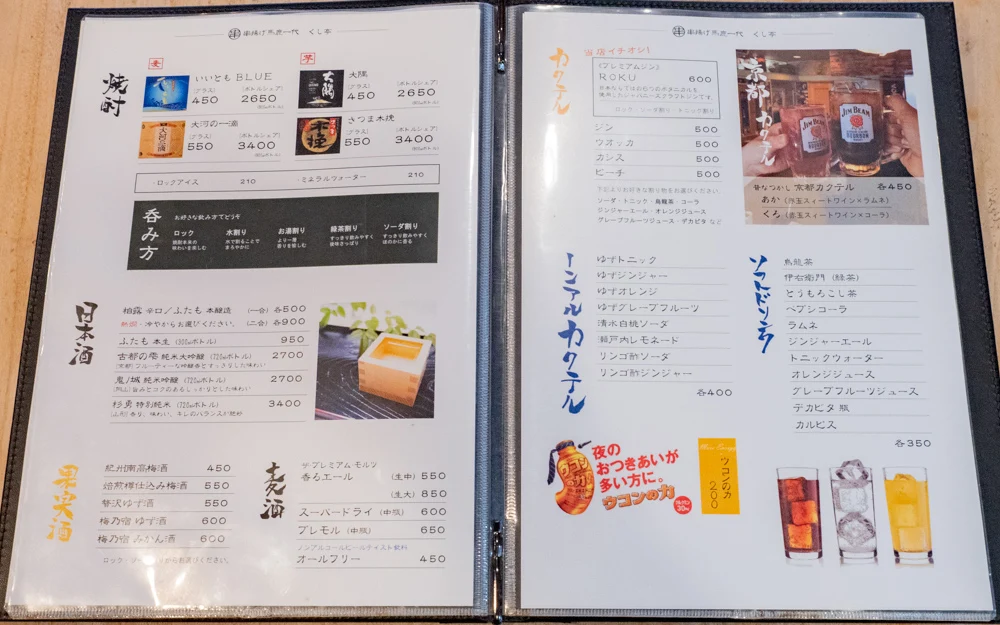 串揚げ不良一代 くし亭
焼酎
麦
いいとも BLUE
(グラス) (ボトルシェア)
450 2650
大河の一滴
(グラス) (ボトルシェア)
550 3400
芋
大隅
(グラス) (ボトルシェア)
450 2650
さつま木挽
(グラス) (ボトルシェア)
550 3400
・ロックアイス 210 ・ミネラルウォーター 210
呑み方
お好きな飲み方でどうぞ
ロック
焼酎本来の
味わいを楽しむ
水割り
水で割ることで
まろやかに
お湯割り
より一層
香りを楽しむ
緑茶割り
すっきり飲みやすく
後味さっぱり
ソーダ割り
すっきり飲みやすく
ほのかに香る
日本酒
柏露 辛口/ふたも 本醸造 (一合) 各500
熱燗・冷やからお選びください。 (二合) 各900
ふたも 本生 (300mlボトル) 950
古都の雫 純米大吟醸 (720mlボトル) 2700
鬼ノ城 純米吟醸 (720mlボトル) 2700
杉勇 特別純米 (720mlボトル) 3400
果実酒
紀州南高梅酒 450
焙煎樽仕込み梅酒 550
贅沢ゆず酒 550
梅乃宿 ゆず酒 600
梅乃宿 みかん酒 600
麦酒
ザ・プレミアム モルツ
香るエール (生中) 550
(生大) 850
スーパードライ (中瓶) 600
プレモル (中瓶) 650
ノンアルコールビールテイスト飲料
オールフリー 450
串揚げ不良一代 くし亭
カクテル
当店イチオシ!
〈プレミアムジン〉
ROKU 600
ロック・ソーダ割り・トニック割り
ジン 500
ウオッカ 500
カシス 500
ピーチ 500
下記よりお好きな割り物をお選びください。
ソーダ・トニック・烏龍茶・コーラ
ジンジャーエール・オレンジジュース
グレープフルーツジュース・デカビタ など
京都カクテル
JIM BEAM
BOURBON
JIM BEAM
BOURBON
昔なつかし 京都カクテル 各450
あか (赤玉スィートワイン×ラムネ)
くろ (赤玉スィートワイン×コーラ)
ノンアルカクテル
ゆずトニック
ゆずジンジャー
ゆずオレンジ
ゆずグレープフルーツ
清水白桃ソーダ
瀬戸内レモネード
リンゴ酢ソーダ
リンゴ酢ジンジャー
各400
ソフトドリンク
烏龍茶
伊右衛門 (緑茶)
とうもろこし茶
ペプシコーラ
ラムネ
ジンジャーエール
トニックウォーター
オレンジジュース
グレープフルーツジュース
デカビタ 瓶
カルピス
各350
ウコンの力
夜の
おつきあいが
多い方に。
ウコンの力
クルクミン
30mg
ウコンの力
200